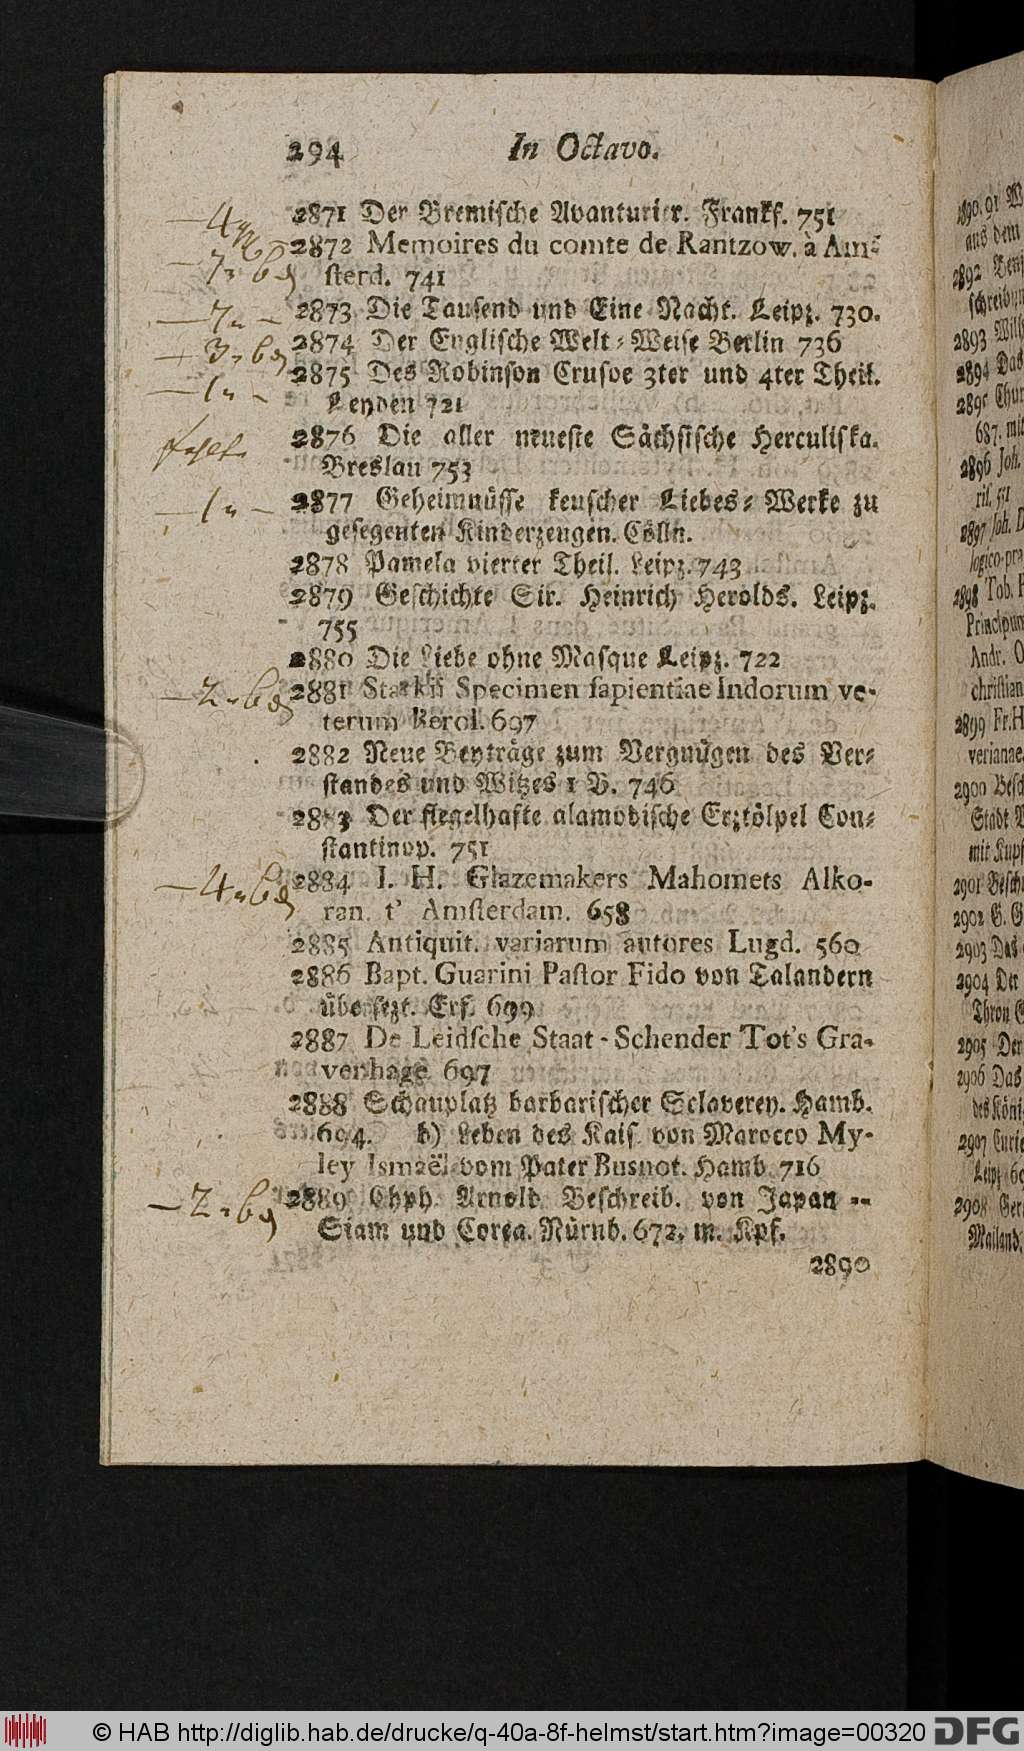 294 In Octavo.
2871 Der Bremische Avanturier. Frankf. 751
2872 Memoires du comte de Rantzow. à Am-
sterd. 741
2873 Die Tausend und Eine Nacht. Leipz. 730.
2874 Der Englische Welt-Weise Berlin 736
2875 Des Robinson Crusoe 3ter und 4ter Theil.
Leyden 721
fehlt.
2876 Die aller neueste Sächsische Herculiska.
Breslau 753
2877 Geheimnüsse keuscher Liebes-Werke zu
gesegenten Kinderzeugen. Cölln.
2878 Pamela vierter Theil. Leipz. 743
2879 Geschichte Sir. Heinrich Herolds. Leipz.
755
2880 Die Liebe ohne Masque Leipz. 722
2881 Starkii Specimen sapientiae Indorum ve-
terum Berol. 697
2882 Neue Beyträge zum Vergnügen des Ver-
standes und Witzes 1 B. 746
2883 Der flegelhafte alamodische Erztölpel Con-
stantinop. 751
2884 I. H. Glazemakers Mahomets Alko-
ran. t' Amsterdam. 658
2885 Antiquit. variarum autores Lugd. 560
2886 Bapt. Guarini Pastor Fido von Talandern
übersezt. Erf. 699
2887 De Leidsche Staat-Schender Tot's Gra-
venhage 697
2888 Schauplatz barbarischer Sclaverey. Hamb.
694. b) Leben des Kais. von Marocco My-
ley Ismaël vom Pater Busnot. Hamb. 716
2889 Chph. Arnold Beschreib. von Japan --
Siam und Corea. Nürnb. 672. m. Kpf.
2890
2890. 91
aus dem
2892
2893
2894 Das
2896 Joh.
2897 Joh. D
2898 Tob.
Principum
Andr. O
christian
2899 Fr. H
verianae
2900 Besch
Stadt
mit Kupf
2901 Besch
2902 G. G
2903 Das
2904 Der
Thron
2905 Der
2906 Das
des Köni
2907 Curie
Leipz 6
2908 Ger
Mailand.
© HAB http://diglib.hab.de/drucke/q-40a-8f-helmst/start.htm?image=00320 DFG